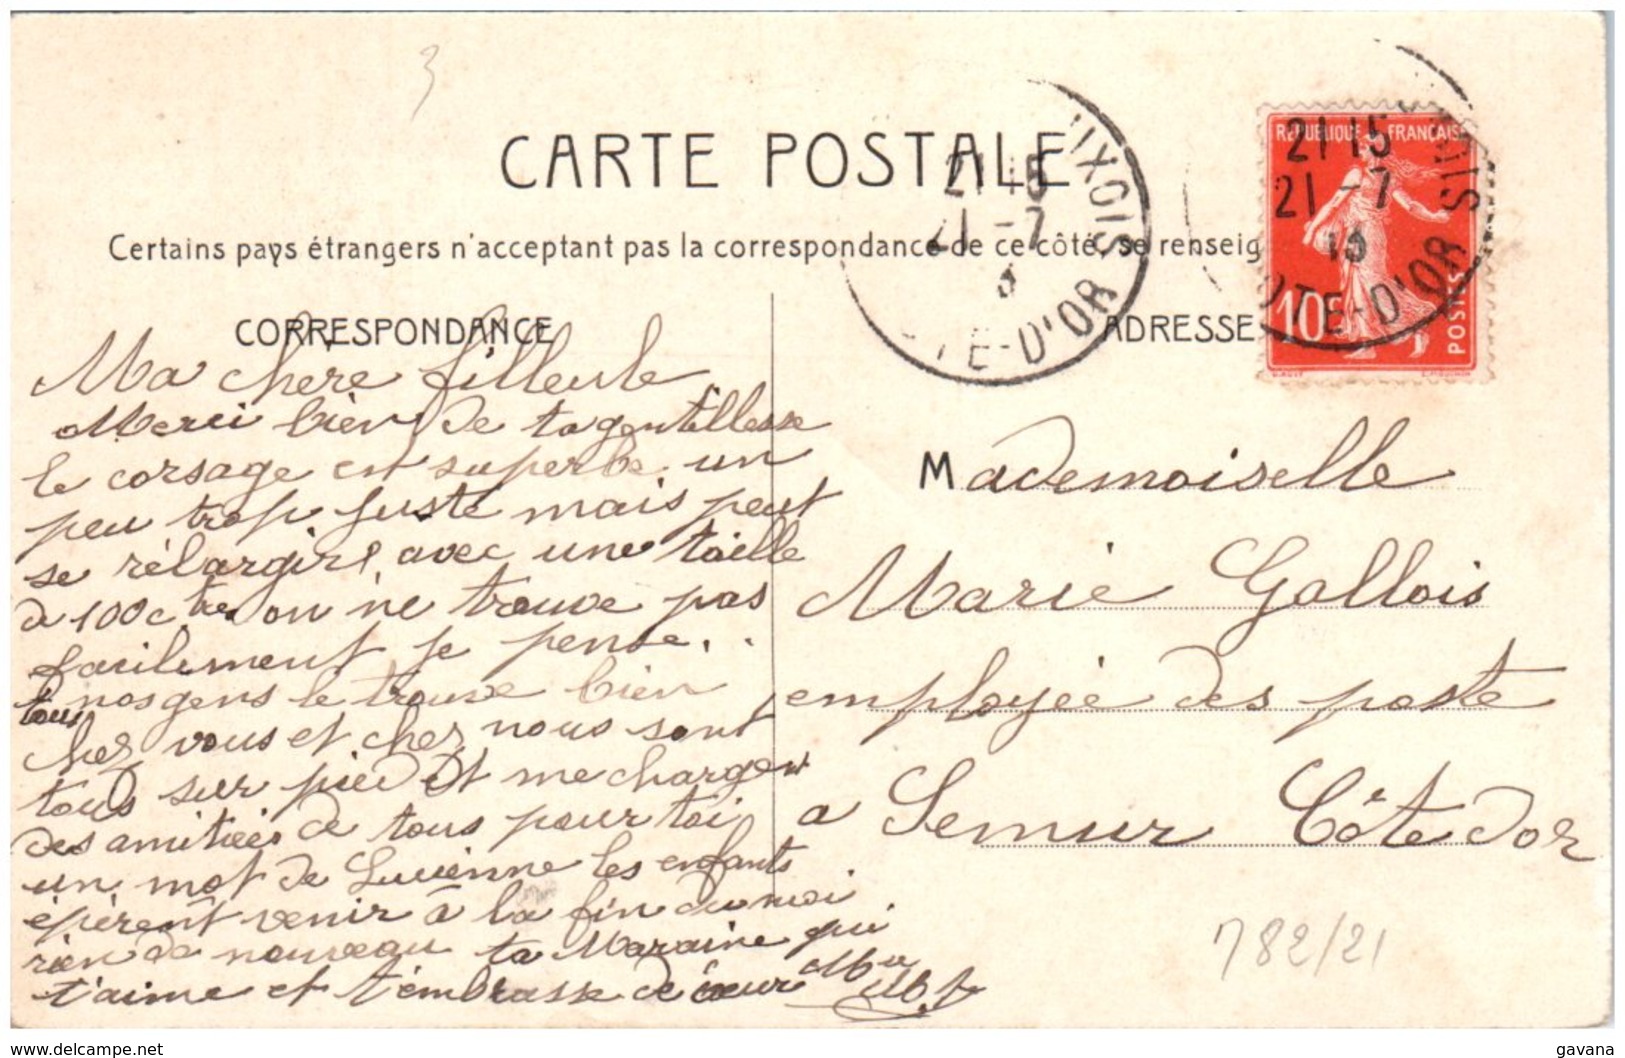 3
CARTE POSTALE
Certains pays étrangers n'acceptant pas la correspondance de ce côté, se renseig
CORRESPONDANCE
Ma chere filleule
Merci bien de ta gentillesse
le corsage est superbe un
peu trop juste mais peut
se rélargir, avec une taille
de 100 c tre on ne trouve pas
facilement je pense. .
tous nos gens le trouve bien
chez vous et chez nous sont
tous sur pied et me chargent
des amitiées de tous pour toi
un mot de Lucienne les enfants
épèrent venir à la fin du moi
rien de nouveau ta Maraine qui
t'aime et t'embrasse de cœur
ADRESSE
Mademoiselle
Marie Gallois
employée des poste
a Semur Côte dor
782/21
REPUBLIQUE FRANÇAISE
10c
POSTES
21 15
21 - 7
13
OTE-D'OR
21 15
21 - 7
3
UXOIS
TE-D'OR
https://www.delcampe.net
gavana